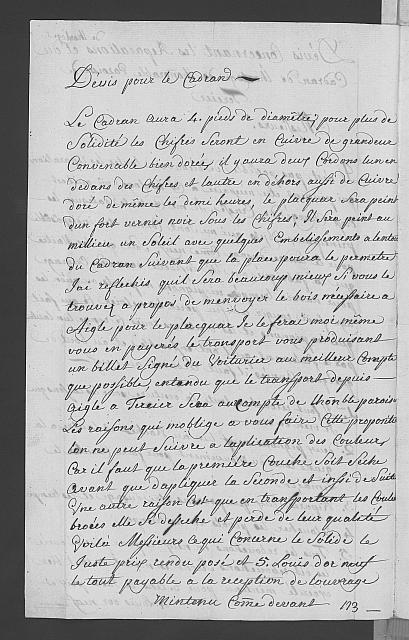 Devis pour le Cadran
Le Cadran aura 4. pieds de diametre; pour plus de
Solidité les Chifres Seront en Cuivre de grandeur
Convenable bien dorés, il y aura deux Cordons lun en
dedans des Chifres et lautre en déhors aussi de Cuivre
doré de même les demi heures, le placquer Sera peint
dun fort vernis noir Sous les Chifres; Il Sera peint au
millieu un Soleil avec quelques Embelissements alentour
du Cadran Suivant que la place poura le permetre
Jai reflechis quil Sera beaucoup mieux Si vous le
trouvez a propos de menvoyer le bois necessaire a
Aigle pour le placquar Je le ferai moi même
vous en payerés le transport vous produisant
un billet Signé du Voiturier au meilleur Compte
que possible, entendu que le transport depuis
Aigle a Tercier Sera au Compte de lhonble paroisse
Les raisons qui moblige a vous faire Cette proposition
lon ne peut Suivre a laplication des Couleurs
Car il faut que la première Couche Soit Sèche
avant que dapliquer la Seconde et insi de Suite
Une autre raison Cest que en transportant les Couleurs
broiées elle Se desseche et perde de leur qualité
Voilla Messieurs Ce qui Concerne le Solide le
Juste prix rendu posé est 5. Louis dor neuf
le tout payable a la reception de louvrage
Mintenu Come devant 173